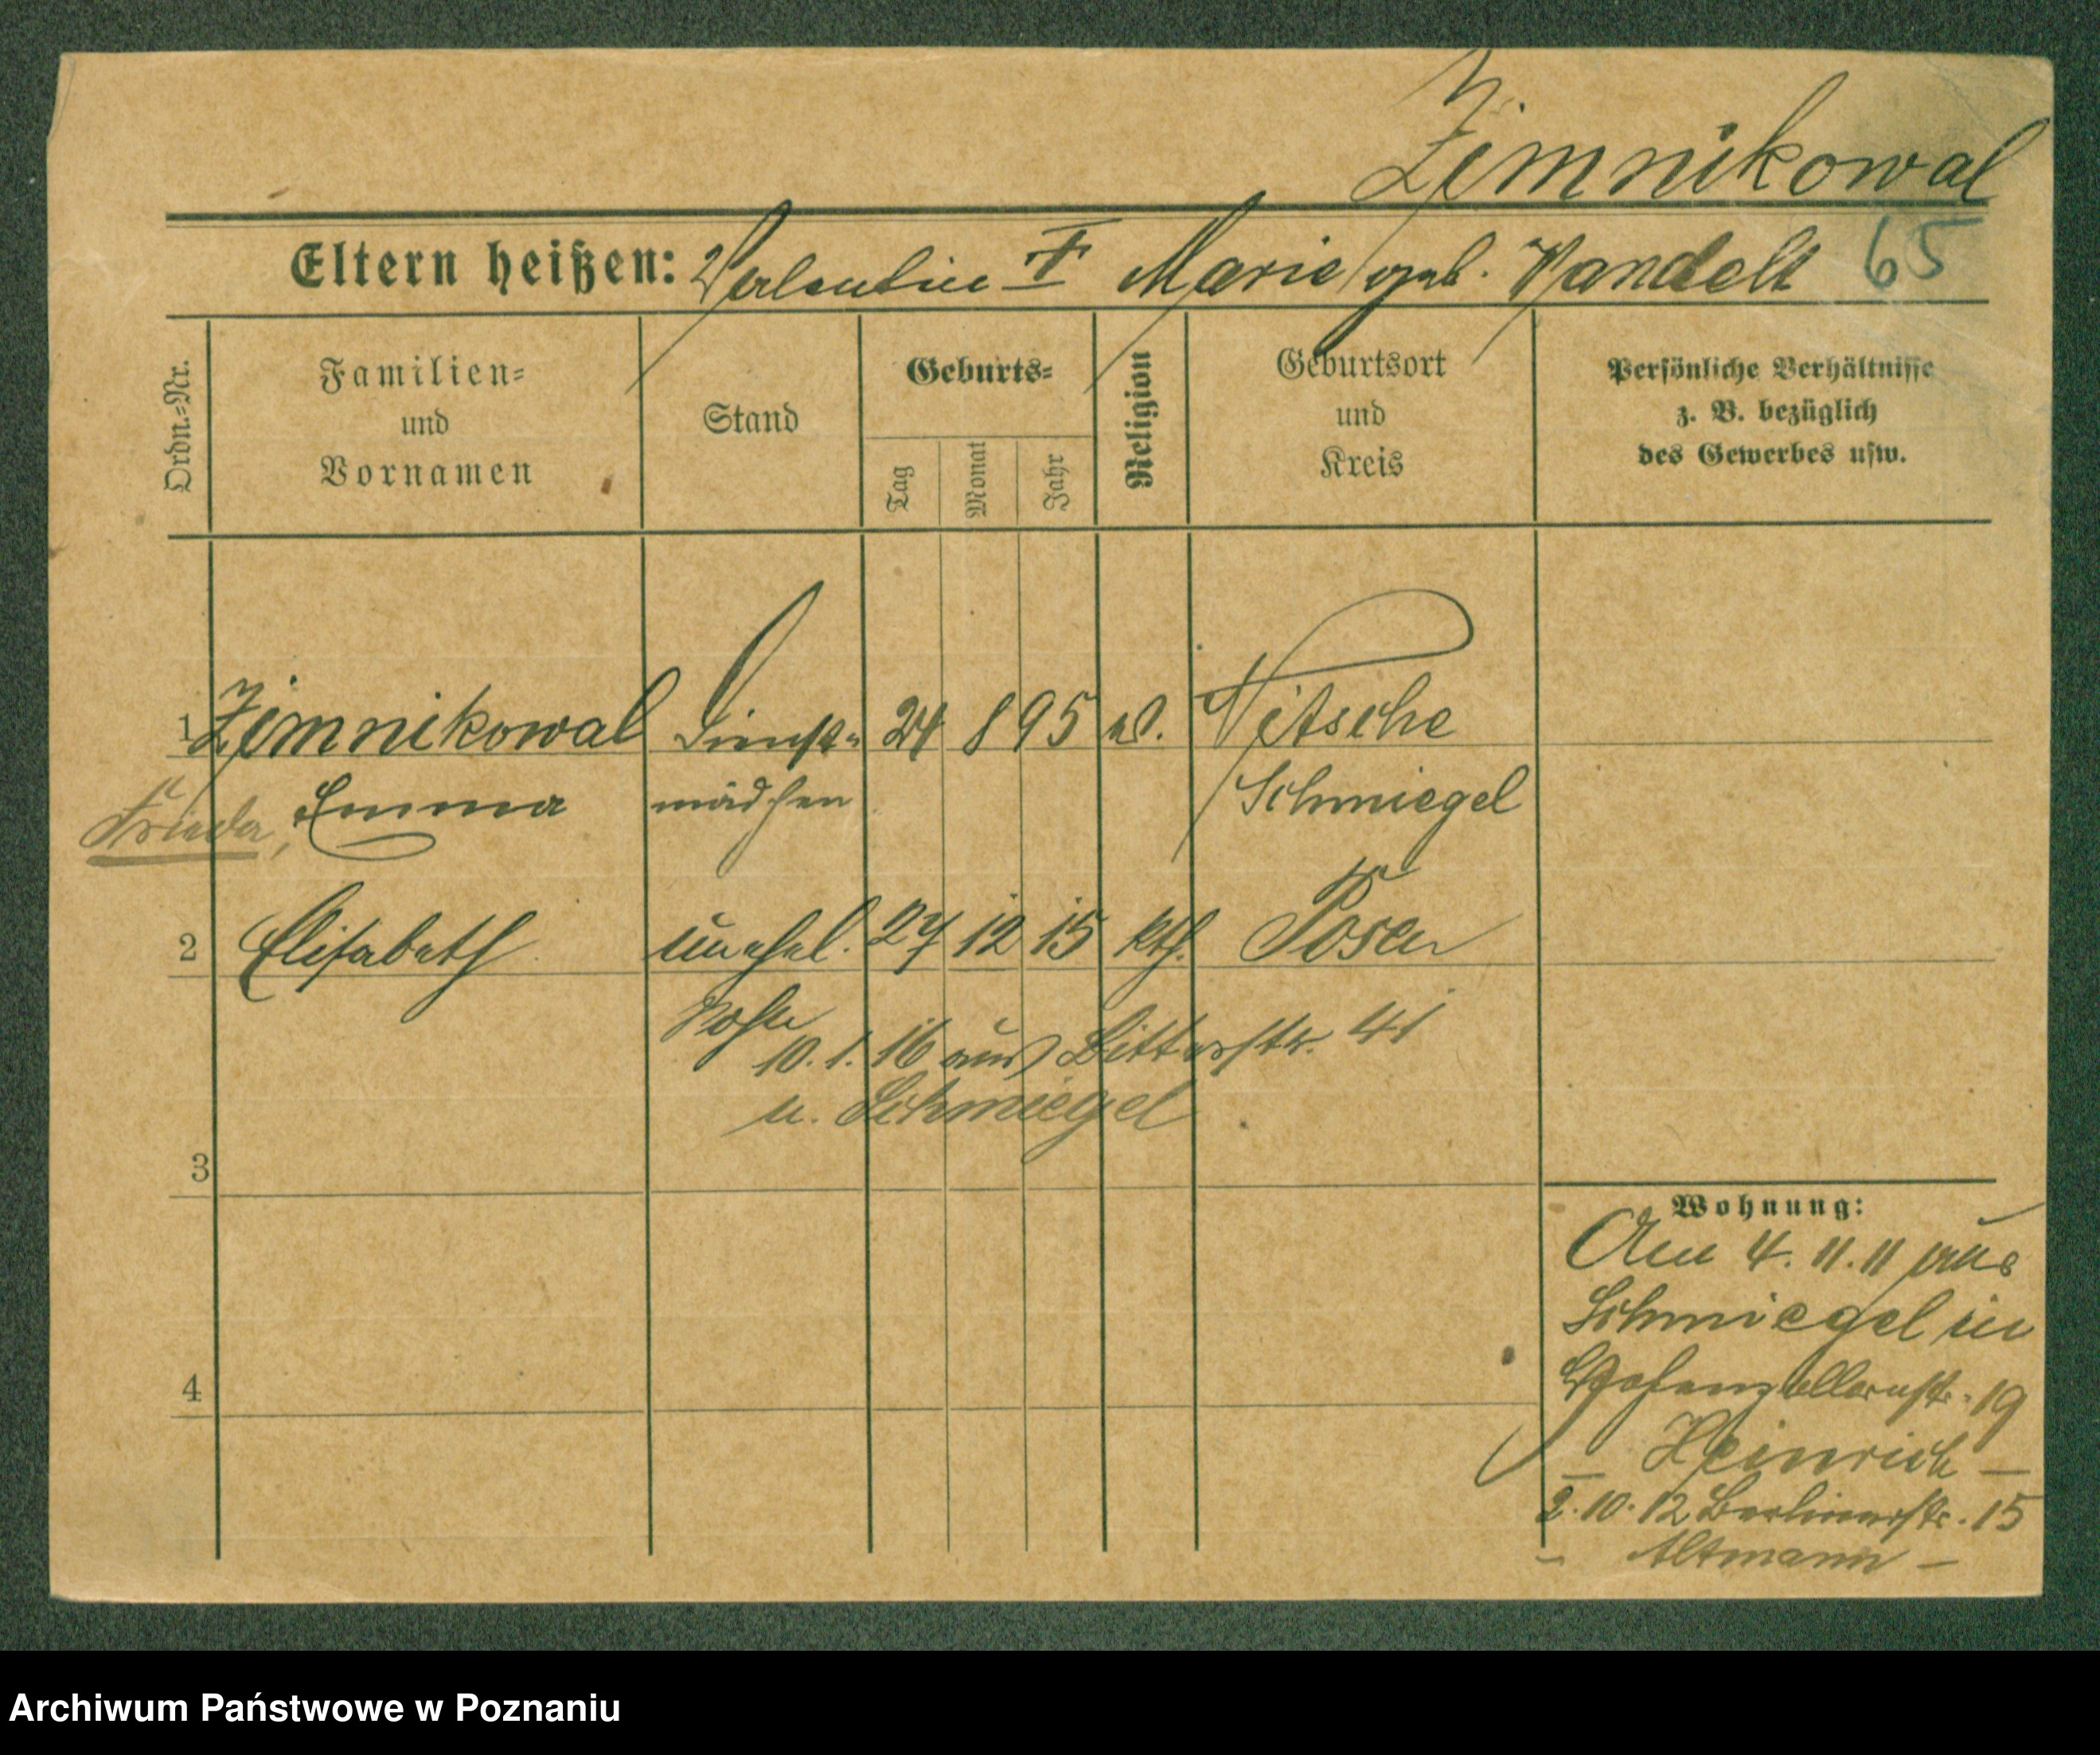 Zimnikowal
Eltern heißen: Valentin † Marie geb. Wandelt 65
Ordn.=Nr.
Familien=
und
Vornamen
Stand
Geburts=
Tag
Monat
Jahr
Religion
Geburtsort
und
Kreis
Persönliche Verhältnisse
z. B. bezüglich
des Gewerbes usw.
1 Zimnikowal Dienst= 24 8 95 Nitsche
Frieda, Emma mädchen Schmiegel
2 Elisabeth unehel. 27 12 15 kth. Posen
10. 1. 16 aus Bitterstr. 41
u. Schmiegel
3
Wohnung:
Am 4. 11. 11 aus
Schmiegel in
Hohenzollernstr. 19
4
– Heinrich –
2. 10. 12 Berlinerstr. 15
– Altmann –
Archiwum Państwowe w Poznaniu